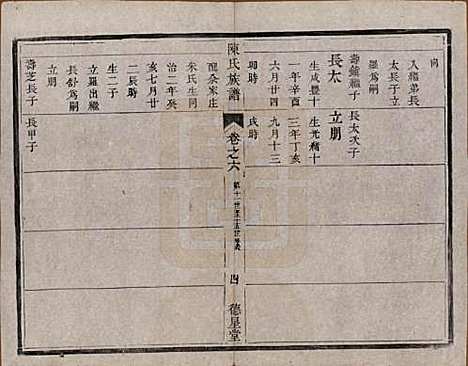 向
入繼弟長
太長子立
壘為嗣
壽鎮繼子
長太
生咸豐十
一年辛酉
六月廿四
卯時
長太次子
立朋
生光緒十
三年丁亥
九月十三
戌時
陳氏族譜
卷之六
四
德星堂
配余家庄
朱氏生同
治二年癸
亥七月廿
二辰時
生二子
立羅出繼
長舒為嗣
立朋
壽芝長子
長甲子